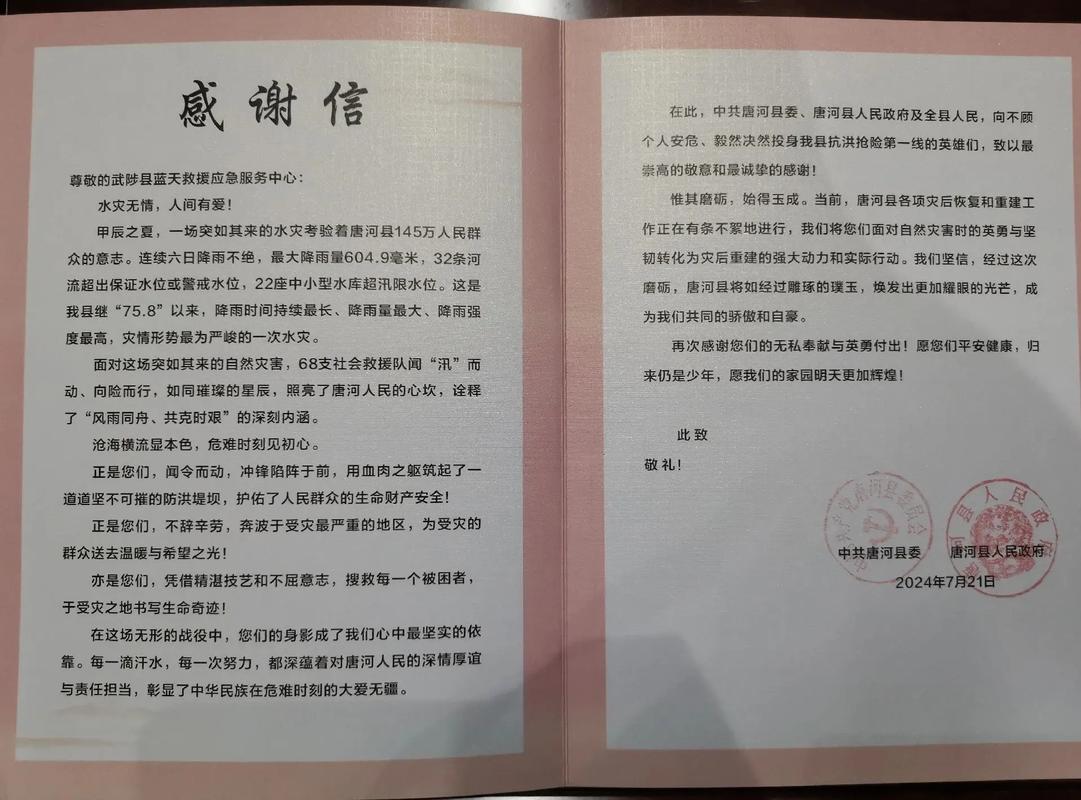 感谢信
尊敬的武陟县蓝天救援应急服务中心：
水灾无情，人间有爱！
甲辰之夏，一场突如其来的水灾考验着唐河县145万人民群
众的意志。连续六日降雨不绝，最大降雨量604.9毫米，32条河
流超出保证水位或警戒水位，22座中小型水库超汛限水位。这是
我县继“75.8”以来，降雨时间持续最长、降雨量最大、降雨强
度最高，灾情形势最为严峻的一次水灾。
面对这场突如其来的自然灾害，68支社会救援队闻“汛”而
动、向险而行，如同璀璨的星辰，照亮了唐河人民的心坎，诠释
了“风雨同舟、共克时艰”的深刻内涵。
沧海横流显本色，危难时刻见初心。
正是您们，闻令而动，冲锋陷阵于前，用血肉之躯筑起了一
道道坚不可摧的防洪堤坝，护佑了人民群众的生命财产安全！
正是您们，不辞辛劳，奔波于受灾最严重的地区，为受灾的
群众送去温暖与希望之光！
亦是您们，凭借精湛技艺和不屈意志，搜救每一个被困者，
于受灾之地书写生命奇迹！
在这场无形的战役中，您们的身影成了我们心中最坚实的依
靠。每一滴汗水，每一次努力，都深蕴着对唐河人民的深情厚谊
与责任担当，彰显了中华民族在危难时刻的大爱无疆。
在此，中共唐河县委、唐河县人民政府及全县人民，向不顾
个人安危、毅然决然投身我县抗洪抢险第一线的英雄们，致以最
崇高的敬意和最诚挚的感谢！
惟其磨砺，始得玉成。当前，唐河县各项灾后恢复和重建工
作正在有条不絮地进行，我们将您们面对自然灾害时的英勇与坚
韧转化为灾后重建的强大动力和实际行动。我们坚信，经过这次
磨砺，唐河县将如经过雕琢的璞玉，焕发出更加耀眼的光芒，成
为我们共同的骄傲和自豪。
再次感谢您们的无私奉献与英勇付出！愿您们平安健康，归
来仍是少年，愿我们的家园明天更加辉煌！
此致
敬礼！
中国共产党唐河县委员会
唐河县人民政府
中共唐河县委 唐河县人民政府
2024年7月21日